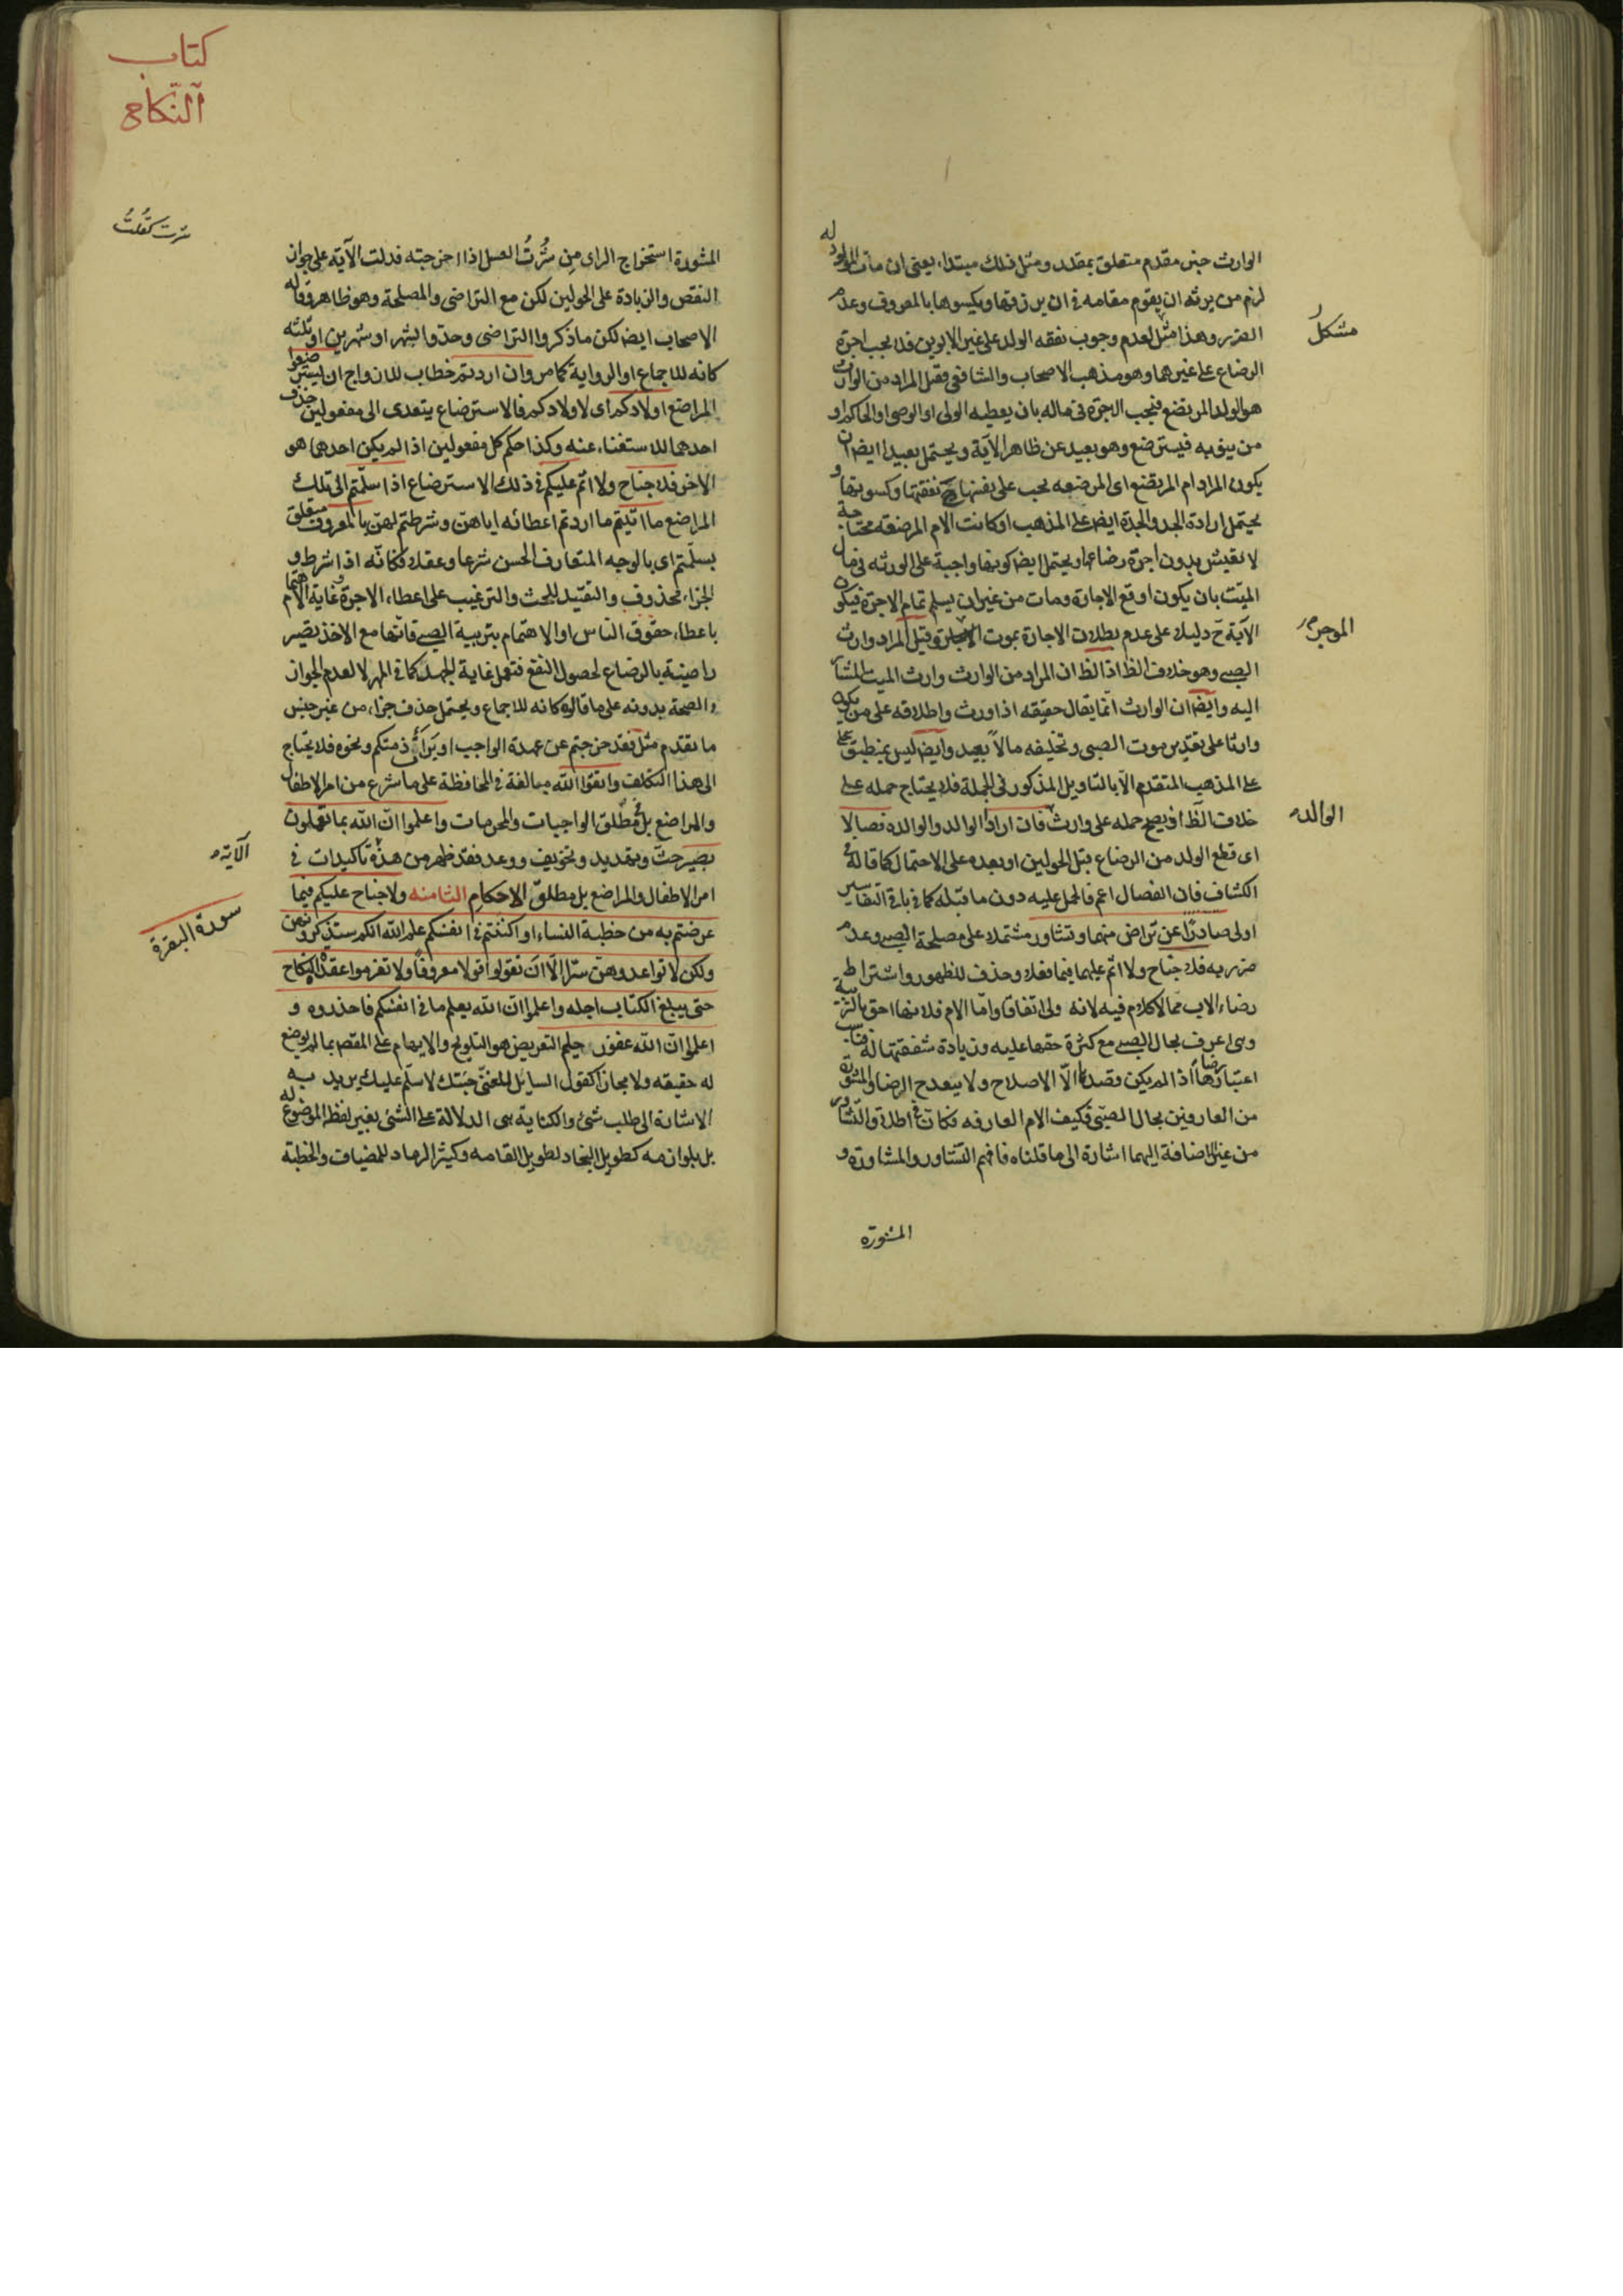 الوارث خبر مقدم متعلق بمقدر ومثل ذلك مبتداء يعنى ان مات المولود له
لزم من يرثه ان يقوم مقامه فى ان يرزقها ويكسوها بالمعروف وعدم
الضرر وهذا مشكل لعدم وجوب نفقه الولد على غير الابوين فلا يجب اجرة
الرضاع على غيرهما وهو مذهب الاصحاب والشافعى فقيل المراد من الوارث
هو الولد المرتضع فيجب الاجرة فى ماله بان يعطيه الولى او الوصى او الحاكم او
من ينو به فيسترضع وهو بعيد عن ظاهر الآية ويحتمل بعيدا ايضا ان
يكون المراد ام المرتضع اى المرضعه يجب على نفسها ح نفقتها وكسوتها و
يحتمل ارادة الجد والجدة ايضا على المذهب او كانت الام المرضعه محتاجة
لا تعيش بدون اجرة رضاعها ويحتمل ايضا كونها واجبة على الورثه فى مال
الميت بان يكون اوقع الاجارة ومات من غير ان يسلم تمام الاجرة فيكون
الآية ح دليلا على عدم بطلان الاجارة بموت وقيل المراد وارث
الصبى وهو خلاف الظ اذ الظ ان المراد من الوارث وارث الميت المشار
اليه وايضا ان الوارث انما يقال حقيقه اذا ورث واطلاقه على من يكون
وارثا على تقدير موت الصبى وتخليفه مالاً بعيد وايضا ليس بمنطبق على
على المذهب المتقدم الا بالتاويل المذكور فى الجملة فلا يحتاج حمله على
خلاف الظ افيصح حمله على وارث فان ارادا الوالد والوالده فصالا
اى قطع الولد من الرضاع قبل الحولين او بعده على الاحتمال كما قاله فى
الكشاف فان الفصال اعم فالحمل عليه دون ما قبله كما فى باقى التفاسير
اولى صادرًا عن تراض منهما وتشاور مشتملا على مصلحة الصبى وعدم
ضرر به فلا جناح ولا اثم عليهما فيما فعلا وحذف للظهور واشتراط
رضاء الاب مما لا كلام فيه لانه ولى اتفاقا واما الام فلانها احق بالتربية
وهى اعرف بحال الصبى مع كثرة حقها عليه وزيادة شفقتها له فناسب
اعتبار رضاها اذا لم يكن قصدها الا الاصلاح ولا يبعد ح الرضا والمشورة
من العارفين بحال الصبى فكيف الام العارفه فكان فى اطلاق التشاور
من غير الاضافة اليهما اشارة الى ما قلناه فافهم التشاور والمشاورة و
المشورة
مشكلُ
الموجر
الوالد
كتاب
النكاح
شرت كقلتُ
المشورة استخراج الراى من شُرتُ العسل اذا اخرجته فدلت الآية على جواز
النقص والزيادة على الحولين لكن مع التراضى والمصلحة وهو ظاهر وقاله
الاصحاب ايضا لكن ما ذكروا التراضى وحدوا بشهر او شهرين او ثلثه
كانه للاجماع او الرواية كما مر وان اردتم خطاب للازواج ان تسترضعوا
المراضع اولادكم اى لاولادكم فالاسترضاع يتعدى الى مفعولين حذف
احدهما للاستغناء عنه وكذا حكم كل مفعولين اذا لم يكن احدهما هو
الاخر فلا جناح ولا اثم عليكم فى ذلك الاسترضاع اذا سلّمتم الى تلك
المراضع ما اتيتم ما اردتم اعطائه اياهن وشرطتم لهن بالمعروف متعلق
بسلّمتم اى بالوجه المتعارف الحسن شرعا وعقلا فكانّه اذا شرط و
الجزاء محذوف والتقييد للحث والترغيب على اعطاء الاجرة وغاية الاهتمام
باعطاء حقوق الناس او الاهتمام بتربية الصبى فانها مع الاخذ يصير
راضية بالرضاع لحصول النفع فتعمل غاية الجهد كما فى المهر لا لعدم الجواز
والصحة بدونه على ما قالوه كانه للاجماع ويحتمل حذف جزاء من غير جنس
ما تقدم مثل فقد خرجتم عن عهدة الواجب او برأت ذمتكم ونحوه فلا يحتاج
الى هذا التكلف واتقوا الله مبالغة فى المحافظة على ما شرع من امر الاطفال
والمراضع بل فى مُطلق الواجبات والمحرمات واعلموا ان الله بما تعملون
بصير حث وتهديد وتخويف ووعد فقد ظهر من هذه تاكيدات فى
امر الاطفال والمراضع بل مطلق الاحكام الثامنه ولا جناح عليكم فيما
عرضتم به من خطبة النساء او اكننتم فى انفسكم علم الله انكم ستذكرونهن
ولكن لا تواعدوهن سرّا الّا ان تقولوا قولا معروفاً ولا تعزموا عقدة النكاح
حتى يبلغ الكتاب اجله واعلموا ان الله يعلم ما فى انفسكم فاحذروه و
اعلموا ان الله غفور حليم التعريض هو التلويح والايهام على المقصد بما لم يوضع
له حقيقه ولا مجازا كقول السايل للمغنى جئتك لاسلّم عليك يريد به
الاشارة الى طلب شئ والكناية هى الدلالة على الشئ بغير لفظ الموضوع له
بل بلوازمه كطويل النجاد لطويل القامه وكثير الرماد للمضياف والخطبة
الآية
سورة البقرة